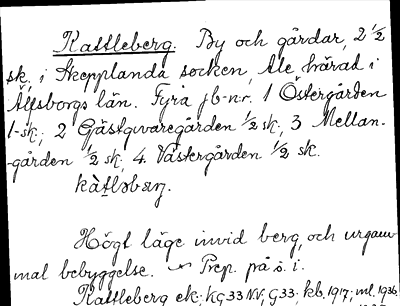 Kattleberg. By och gårdar, 2 1/2
sk, i Skepplanda socken, Ale härad i
Älfsborgs län. Fyra jb-nr. 1 Östergården
1 sk; 2 Gästgivaregården 1/2 sk, 3 Mellan-
-gården 1/2 sk; 4. Västergården 1/2 sk.
Högt läge invid berg, och urgam-
mal bebyggelse. Prep. på s. i.
Kattleberg ek; KG33NV, G33; kb. 1917; ml. 1936